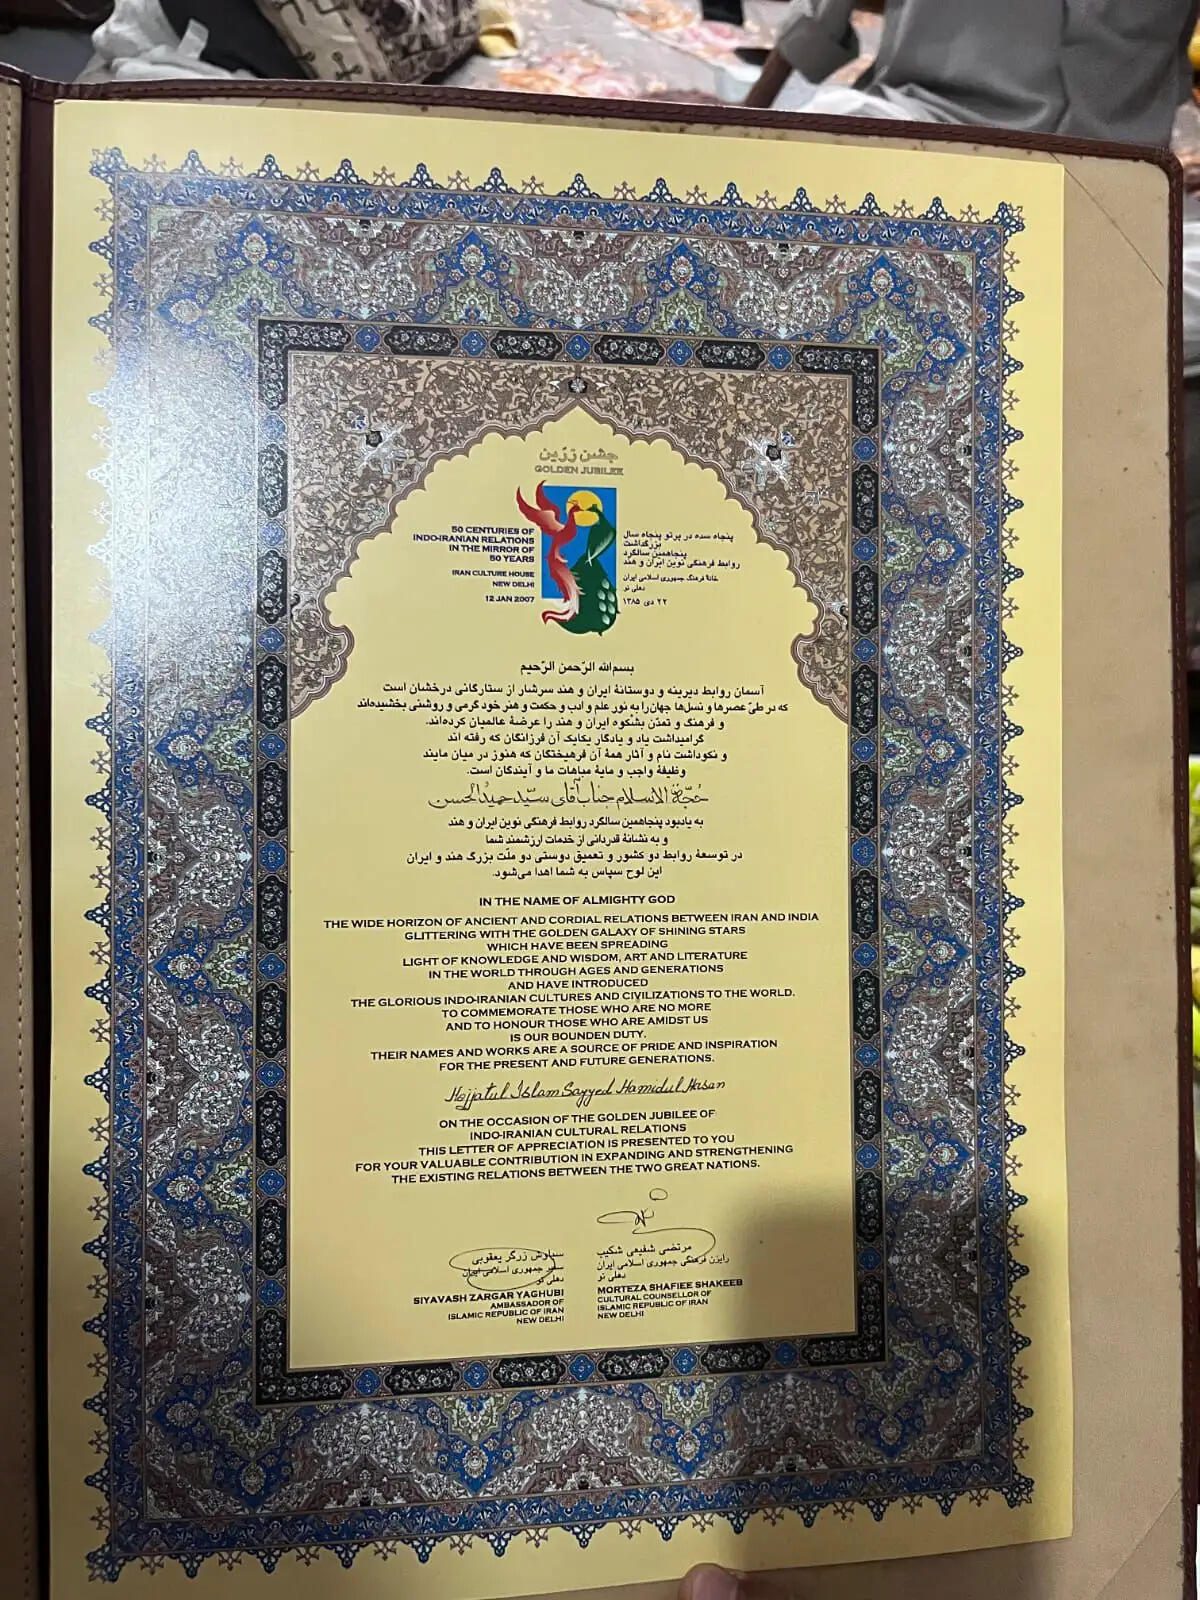 جشن زرّین
GOLDEN JUBILEE
50 CENTURIES OF
INDO-IRANIAN RELATIONS
IN THE MIRROR OF
50 YEARS
IRAN CULTURE HOUSE
NEW DELHI
12 JAN 2007
پنجاه سده در پرتو پنجاه سال
بزرگداشت
پنجاهمین سالگرد
روابط فرهنگی نوین ایران و هند
خانهٔ فرهنگ جمهوری اسلامی ایران
دهلی نو
۲۲ دی ۱۳۸۵
بسم‌الله الرّحمن الرّحیم
آسمان روابط دیرینه و دوستانهٔ ایران و هند سرشار از ستارگانی درخشان است
که در طیّ عصرها و نسل‌ها جهان را به نور علم و ادب و حکمت و هنر خود گرمی و روشنی بخشیده‌اند
و فرهنگ و تمدّن بشکوه ایران و هند را عرضهٔ عالمیان کرده‌اند.
گرامیداشت یاد و یادگار یکایک آن فرزانگان که رفته اند
و نکوداشت نام و آثار همهٔ آن فرهیختگان که هنوز در میان مایند
وظیفهٔ واجب و مایهٔ مباهات ما و آیندگان است.
حُجّة الاسلام جناب آقای سیّد حمیدُالحسن
به یادبود پنجاهمین سالگرد روابط فرهنگی نوین ایران و هند
و به نشانهٔ قدردانی از خدمات ارزشمند شما
در توسعهٔ روابط دو کشور و تعمیق دوستی دو ملّت بزرگ هند و ایران
این لوح سپاس به شما اهدا می‌شود.
IN THE NAME OF ALMIGHTY GOD
THE WIDE HORIZON OF ANCIENT AND CORDIAL RELATIONS BETWEEN IRAN AND INDIA
GLITTERING WITH THE GOLDEN GALAXY OF SHINING STARS
WHICH HAVE BEEN SPREADING
LIGHT OF KNOWLEDGE AND WISDOM, ART AND LITERATURE
IN THE WORLD THROUGH AGES AND GENERATIONS
AND HAVE INTRODUCED
THE GLORIOUS INDO-IRANIAN CULTURES AND CIVILIZATIONS TO THE WORLD.
TO COMMEMORATE THOSE WHO ARE NO MORE
AND TO HONOUR THOSE WHO ARE AMIDST US
IS OUR BOUNDEN DUTY.
THEIR NAMES AND WORKS ARE A SOURCE OF PRIDE AND INSPIRATION
FOR THE PRESENT AND FUTURE GENERATIONS.
Hojjatul Islam Sayyed Hamidul Hasan
ON THE OCCASION OF THE GOLDEN JUBILEE OF
INDO-IRANIAN CULTURAL RELATIONS
THIS LETTER OF APPRECIATION IS PRESENTED TO YOU
FOR YOUR VALUABLE CONTRIBUTION IN EXPANDING AND STRENGTHENING
THE EXISTING RELATIONS BETWEEN THE TWO GREAT NATIONS.
سیاوش زرگر یعقوبی
سفیر جمهوری اسلامی ایران
دهلی نو
SIYAVASH ZARGAR YAGHUBI
AMBASSADOR OF
ISLAMIC REPUBLIC OF IRAN
NEW DELHI
مرتضی شفیعی شکیب
رایزن فرهنگی جمهوری اسلامی ایران
دهلی نو
MORTEZA SHAFIEE SHAKEEB
CULTURAL COUNSELLOR OF
ISLAMIC REPUBLIC OF IRAN
NEW DELHI